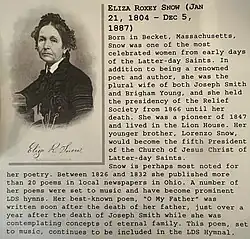 ELIZA ROXEY SNOW (JAN
21, 1804 – DEC 5,
1887)
Born in Becket, Massachusetts,
Snow was one of the most
celebrated women from early days
of the Latter-day Saints. In
addition to being a renowned
poet and author, she was the
plural wife of both Joseph Smith
and Brigham Young, and she held
the presidency of the Relief
Society from 1866 until her
death. She was a pioneer of 1847
and lived in the Lion House. Her
younger brother, Lorenzo Snow,
would become the fifth President
of the Church of Jesus Christ of
Latter-day Saints.
Snow is perhaps most noted for
her poetry. Between 1826 and 1832 she published more
than 20 poems in local newspapers in Ohio. A number of
her poems were set to music and have become prominent
LDS hymns. Her best-known poem, "O My Father" was
written soon after the death of her father, just over a
year after the death of Joseph Smith while she was
contemplating concepts of eternal family. This poem, set
to music, continues to be included in the LDS Hymnal.
Eliza R. Snow